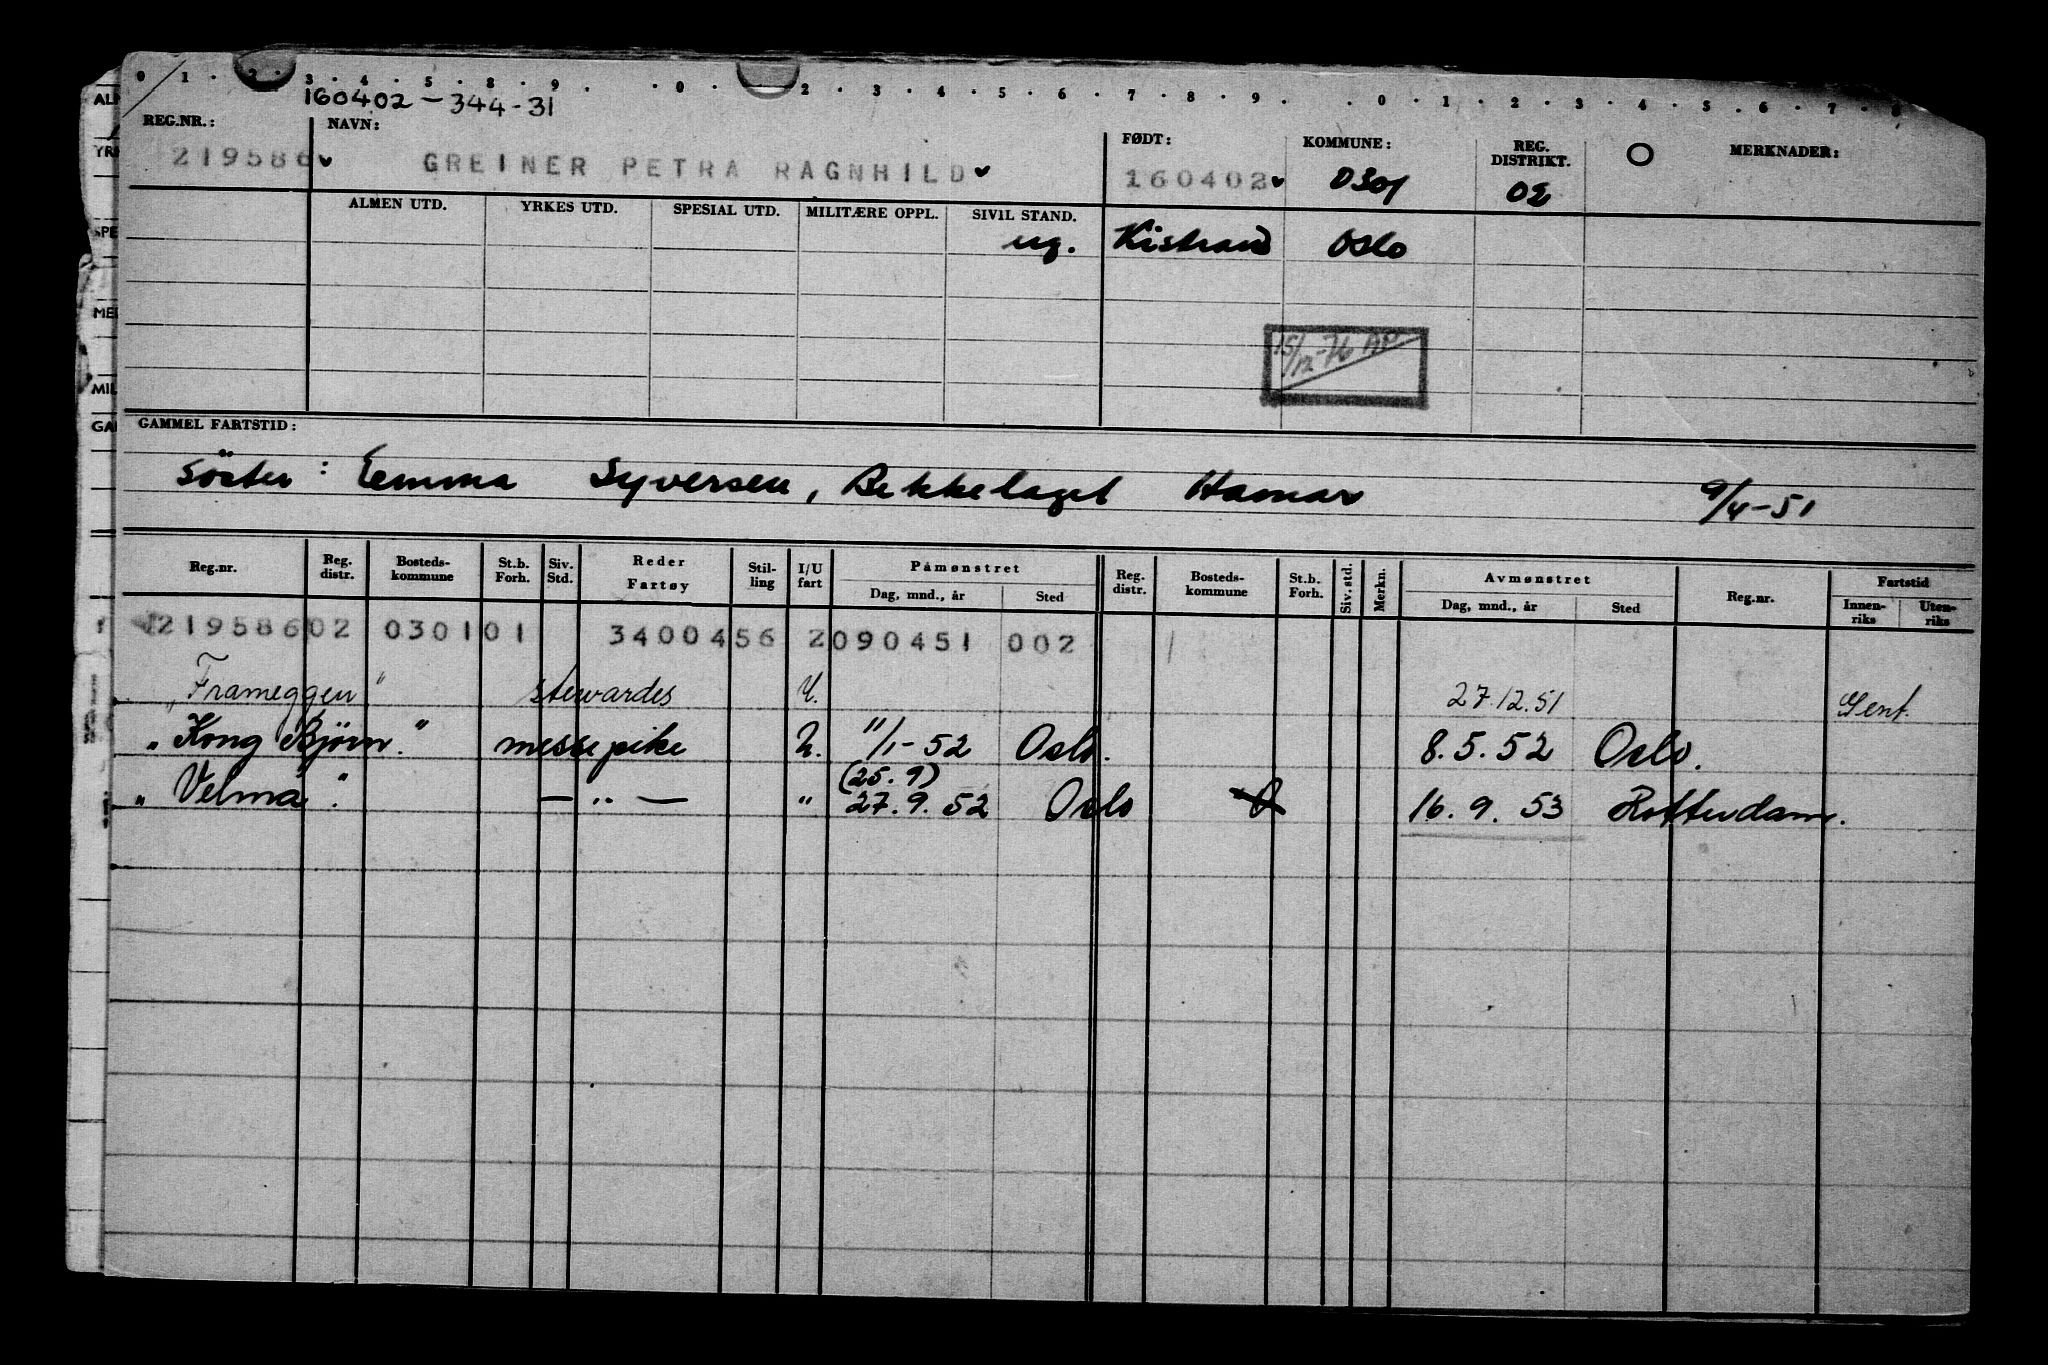 0 1 . 2 . 3 . 4 . 5 . 8 . 9 . . 0 . 2 . 3 . 4 . 5 . 6 . 7 . 8 . 9 . . 0 . 1 . 2 . 3 . 4 . 5 . 6 . 7 . 8
160402-344-31
REG.NR.: NAVN: FØDT: KOMMUNE: REG. DISTRIKT. O MERKNADER:
219586 GREINER PETRA RAGNHILD 160402 0301 02
ALMEN UTD. YRKES UTD. SPESIAL UTD. MILITÆRE OPPL. SIVIL STAND.
ug. Kistrand Oslo
15/12-76 AP
GAMMEL FARTSTID:
Söster: Emma Syversen, Bekkelaget Hamar 9/4-51
Reg.nr. Reg. distr. Bosteds-kommune St.b. Forh. Siv. Std. Reder Fartøy Stil-ling I/U fart Påmønstret Reg. distr. Bosteds-kommune St.b. Forh. Siv. std. Merkn. Avmønstret Reg.nr. Fartstid
Dag, mnd., år Sted Dag, mnd., år Sted Innen-riks Uten-riks
219586 02 0301 01 3400456 2 090451 002
"Frameggen" stewardes U. 27.12.51 Gent.
"Kong Bjørn." messepike U. 11/1-52 Oslo. 8.5.52 Oslo.
(25.9)
"Velma". — " — " 27.9.52 Oslo 16.9.53 Rotterdam.